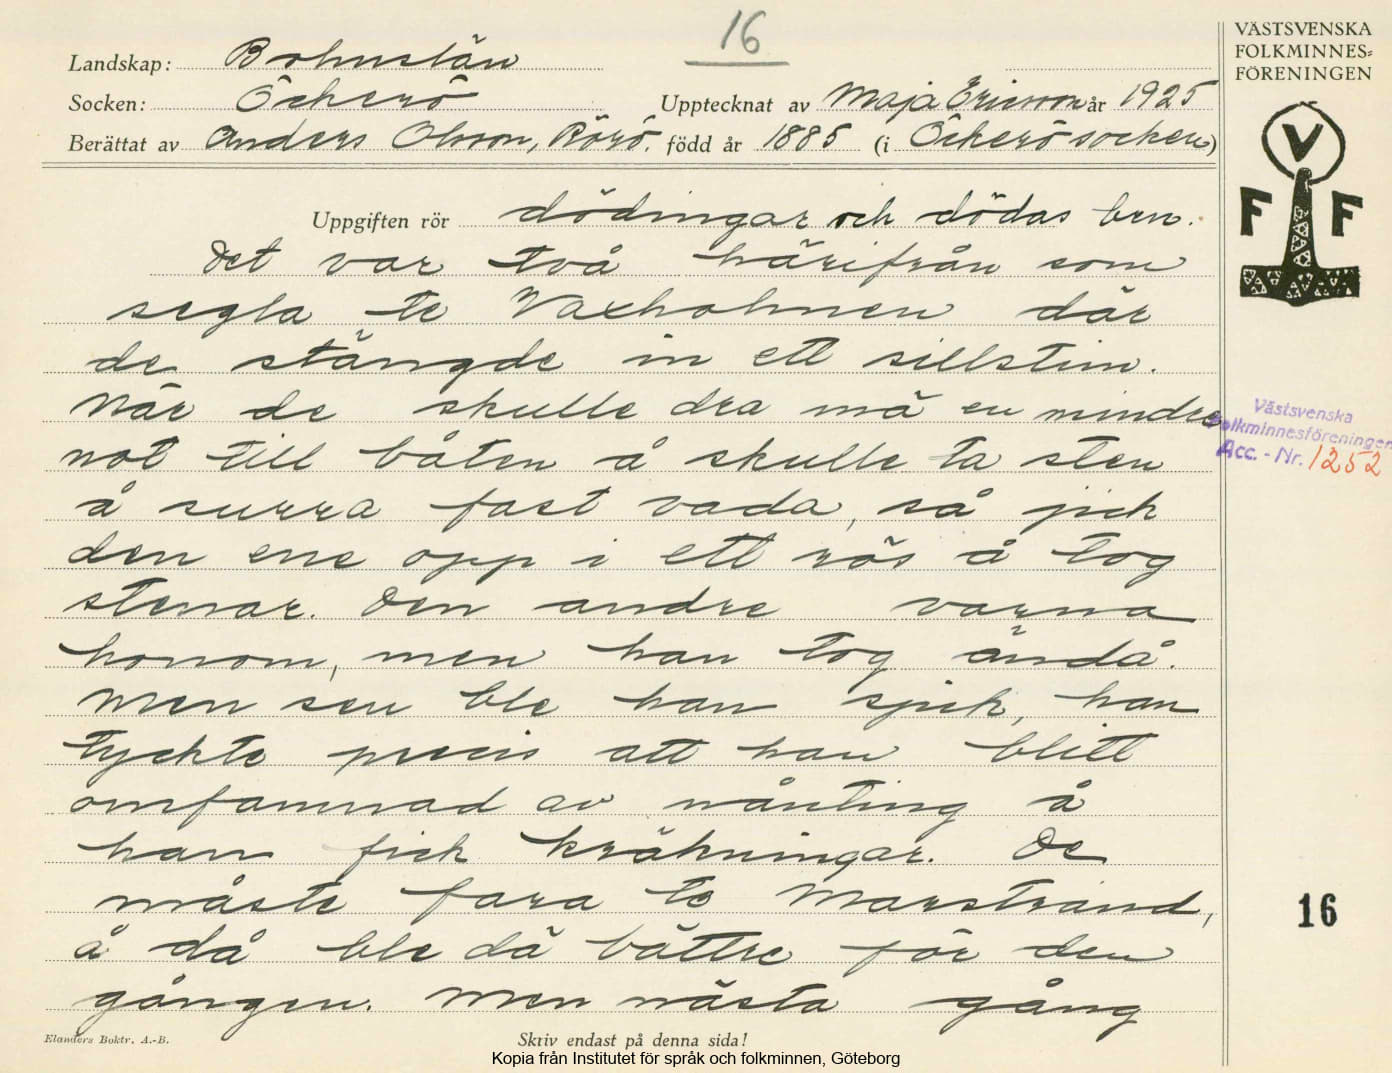 16
VÄSTSVENSKA
FOLKMINNES-
FÖRENINGEN
Landskap: Bohuslän
Socken: Öckerö
Upptecknat av Maja Ericson år 1925
Berättat av Anders Olsson, Rörö. född år 1885 (i Öckerö socken)
V
F F
Uppgiften rör dödingar och dödas ben.
Det var två härifrån som
segla te Vaxholmen där
de stängde in ett sillstim.
När de skulle dra mä en mindre
not till båten å skulle ta sten
å surra fast vada, så jick
den ene opp i ett rös å tog
stenar. Den andre varna
honom, men han tog ändå.
Men sen ble han sjuk, han
tyckte precis att han blitt
omfamnad av nånting å
han fick kräkningar. De
måste fara te Marstrand,
å då ble dä bättre för den
gången. Men nästa gång
Västsvenska
Folkminnesföreningen
Acc. - Nr. 1252
16
Elanders Boktr. A.-B.
Skriv endast på denna sida!
Kopia från Institutet för språk och folkminnen, Göteborg